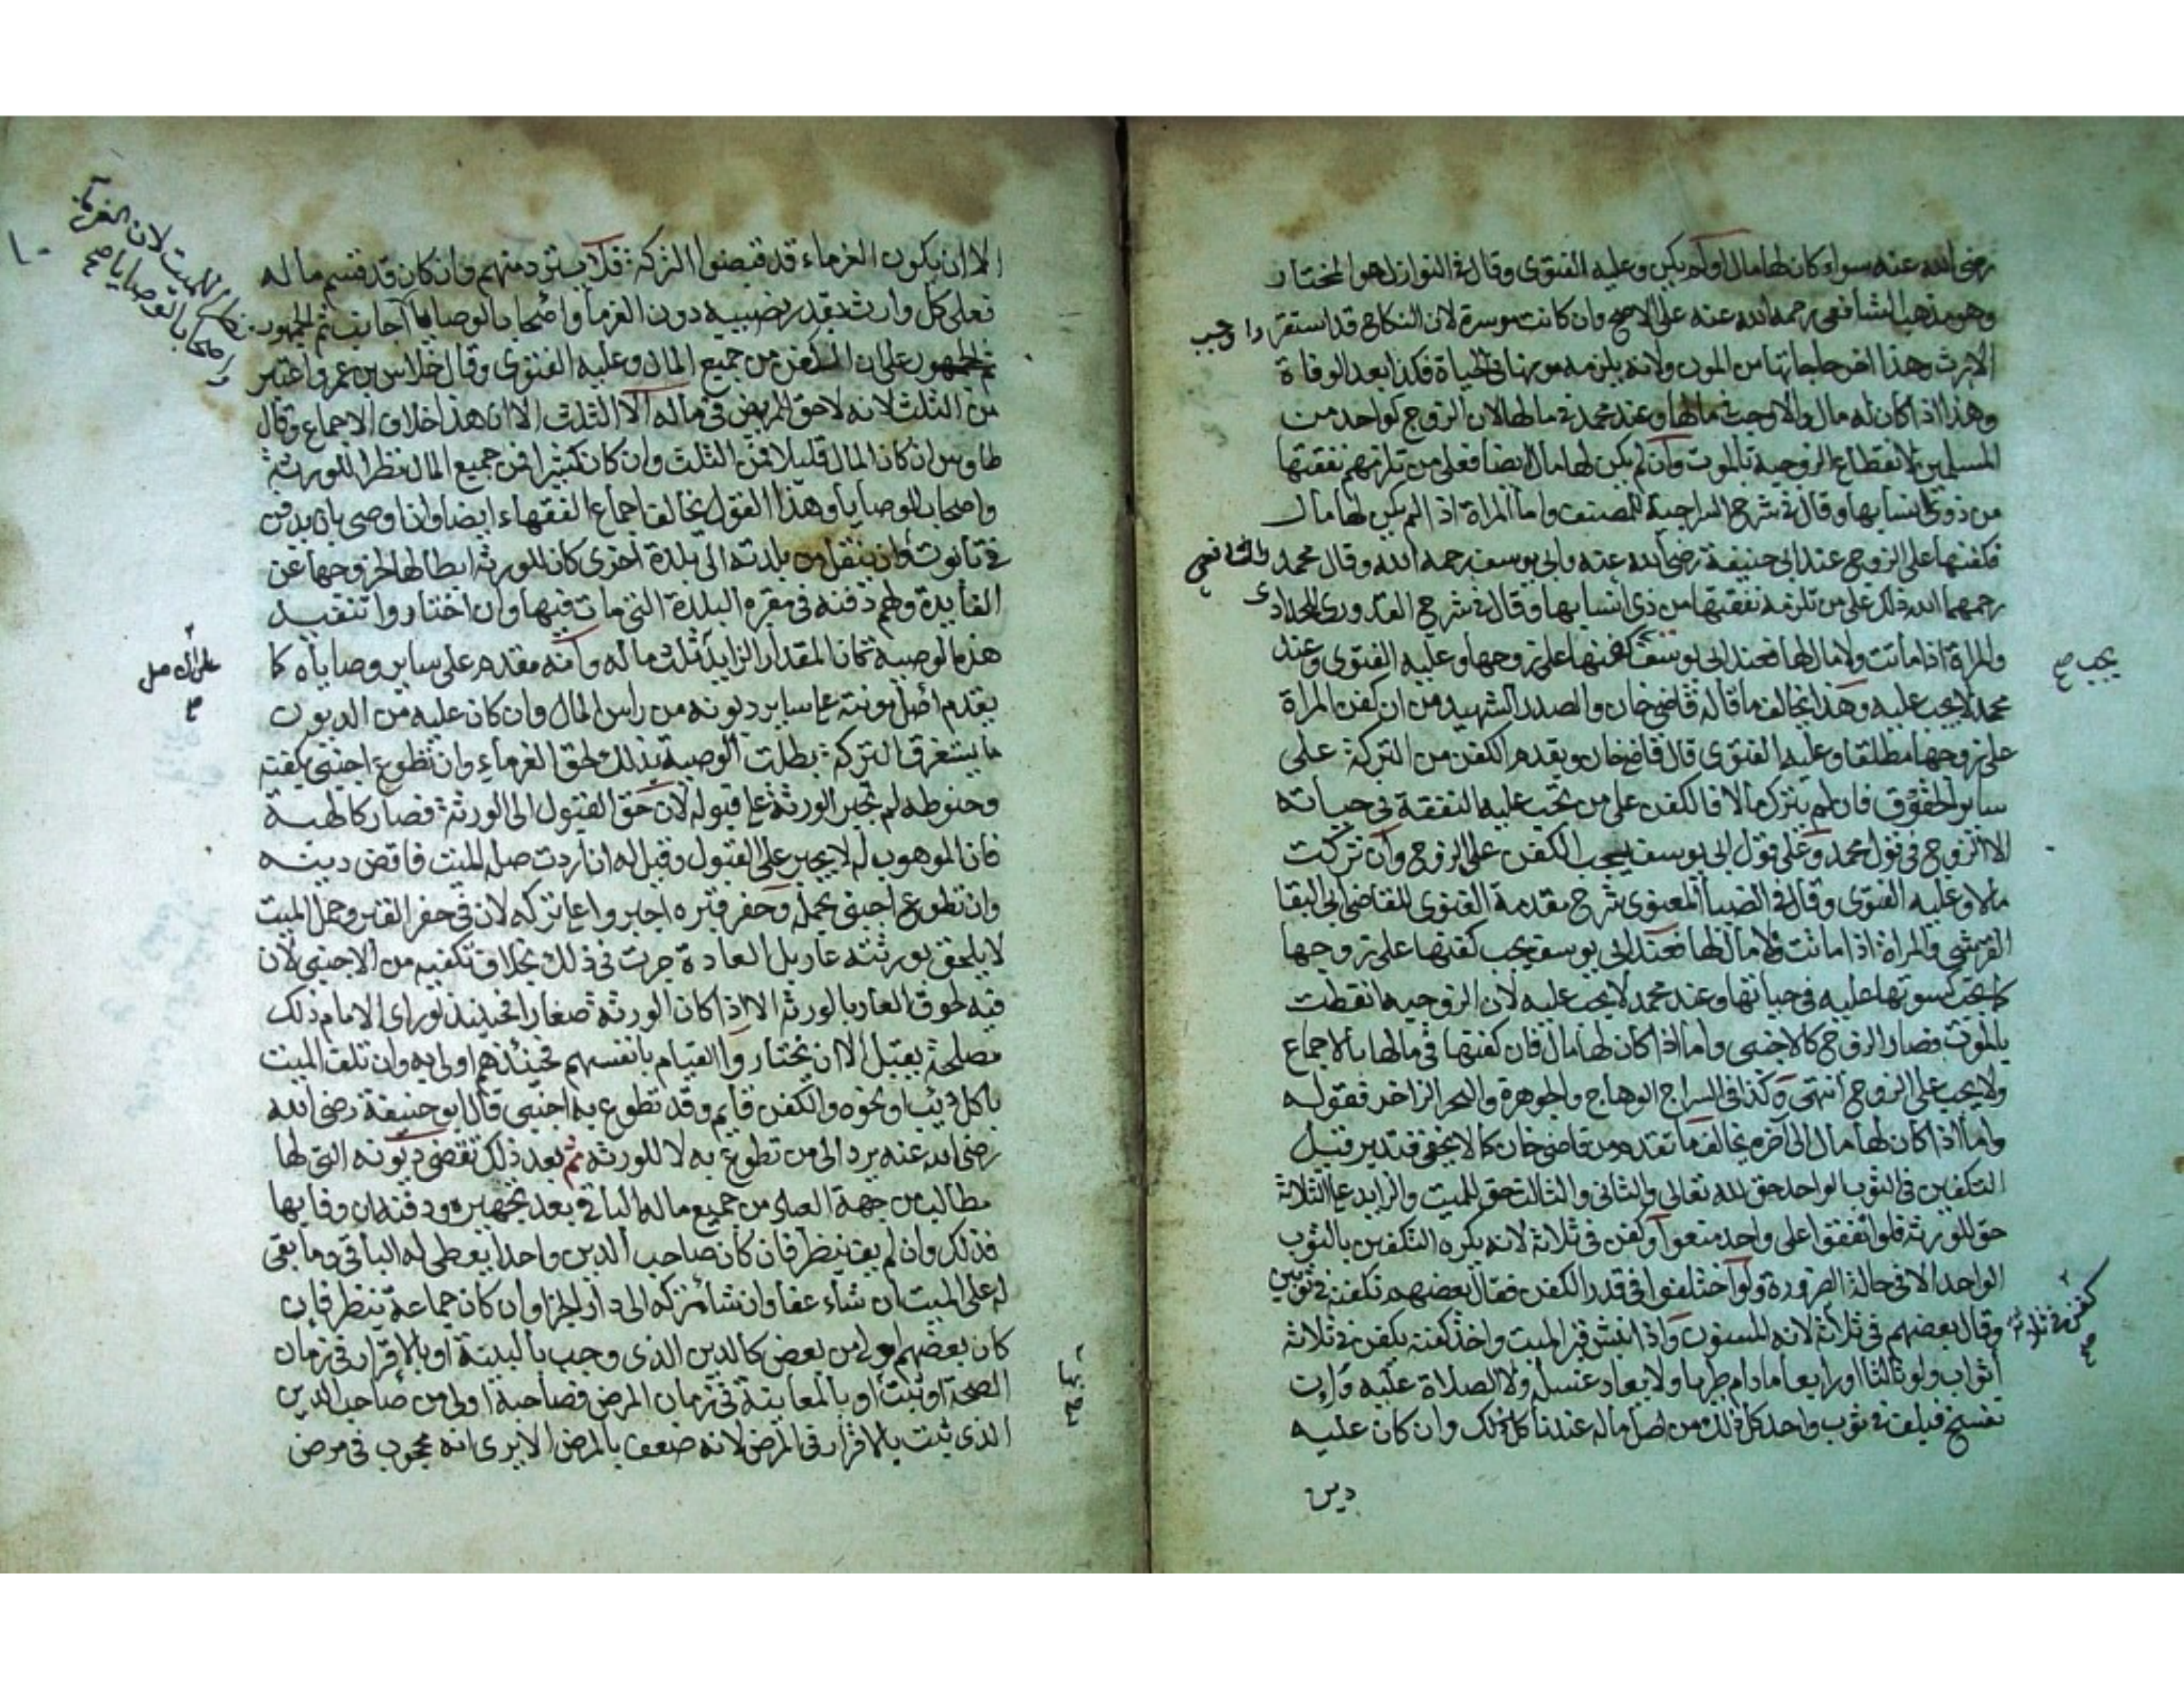 رضى الله عنه سواء كان لها مال أو لم يكن وعليه الفتوى وقال في النوازل هو المختار
وهو مذهب الشافعي رحمه الله عنه على الاصح وان كانت موسرة لان النكاح قد استقر واوجب
الارث وهذا اخر حاجاتها من المون ولانه يلزمه مونها في الحياة فكذا بعد الوفاة
وهذا اذا كان له مال والا وجب في مالها وعند محمد في مالها لان الزوج كواحد من
المسلمين لانقطاع الزوجية بالموت وان لم يكن لها مال ايضا فعلى من تلزمهم نفقتها
من ذوي انسابها وقال في شرح السراجية للمصنف واما المراة اذا لم يكن لها مال
فكفنها على الزوج عند ابى حنيفة رضى الله عنه وابى يوسف رحمه الله وقال محمد والشافعي
رحمهما الله ذلك على من تلزمه نفقتها من ذى انسابها وقال في شرح القدورى للحلادى
والمراة اذا ماتت ولا مال لها فعند ابى يوسف كفنها على زوجها وعليه الفتوى وعند
يجب صح
محمد لا يجب عليه وهذا يخالف ما قاله قاضي خان والصدر الشهيد من ان كفن المراة
على زوجها مطلقا وعليه الفتوى قال قاضيخان ويقدم الكفن من التركة على
ساير الحقوق فان لم يترك مالا فالكفن على من تجب عليه النفقة في حياته
الا الزوج في قول محمد وعلى قول ابى يوسف يجب الكفن على الزوج وان تركت
مالا وعليه الفتوى وقال في الضيا المعنوى شرح مقدمة الغزنوى للقاضى ابى البقا
القرشي والمراة اذا ماتت ولا مال لها فعند ابى يوسف يجب كفنها على زوجها
كما تجب كسوتها عليه في حياتها وعند محمد لا يجب عليه لان الزوجيه انقطعت
بالموت فصار الزوج كالاجنبى واما اذا كان لها مال فان كفنها في مالها بالاجماع
ولا يجب على الزوج انتهى وكذا في السراج الوهاج والجوهرة والبحر الزاخر فقوله
واما اذا كان لها مال الى اخره يخالف ما تقدم من قاضي خان كما لا يخفى فتدبر قيل
التكفين في الثوب الواحد حق لله تعالى والثانى والثالث حق للميت والزايد على الثلاثة
حق للورثة فلو اتفقوا على واحد منعوا وكفن في ثلاثة لانه يكره التكفين بالثوب
الواحد الا في حالة الضرورة ولو اختلفوا في قدر الكفن فقال بعضهم تكفنه في ثوبين
وقال بعضهم في ثلاثة لانه المسنون واذا نبش قبر الميت واخذ كفنه يكفن في ثلاثة
كفن في ثلاثة صح
اثواب ولو ثالثا او رابعا ما دام طريا ولا يعاد غسله ولا الصلاة عليه وان
تفسخ فيلف في ثوب واحد كل ذلك من اصل ماله عندنا كل ذلك وان كان عليه
دين
الا ان يكون الغرماء قد قبضوا التركة فلا يسترد منهم وان كان قد قسم ماله
فعلى كل وارث بقدر نصيبه دون الغرما واصحاب الوصايا
نظرا للميت لان الغرما
واصحاب الوصايا صح
ثم الجمهور على ان الكفن من جميع المال وعليه الفتوى وقال خلاس بن عمرو اعتبر
من الثلث لانه لا حق للمريض في ماله الا الثلث الا ان هذا خلاف الاجماع وقال
طاوس ان كان المال قليلا فمن الثلث وان كان كثيرا فمن جميع المال نظرا للورثة
واصحاب الوصايا وهذا القول يخالف اجماع الفقهاء ايضا وان اوصى بان يدفن
في تابوت وان ينقل من بلدته الى بلدة اخرى كان للورثة ابطالها لخروجها عن
الفايدة ولهم دفنه في مقبرة البلدة التى مات فيها وان اختاروا تنفيذ
هذه الوصية كان المقدار الزايد ثلث ماله وانه مقدم على ساير وصاياه كما
على الاصل
صح
يقدم اصل مونته على ساير ديونه من راس المال وان كان عليه من الديون
ما يستغرق التركة بطلت الوصية بذلك لحق الغرماء وان تطوع اجنبى بكفنه
وحنوطه لم تجبر الورثة على قبوله لان حق القبول الى الورثة فصار كالهبة
فان الموهوب له لا يجبر على القبول وقيل له ان اردت صلة الميت فاقض دينه
وان تطوع اجنبى بحمله وحفر قبره اجبروا على تركه لان في حفر القبر وحمل الميت
لا يلحق بورثته عار بل العادة جرت في ذلك بخلاف تكفينه من الاجنبى لان
فيه لحوق العار بالورثة الا اذا كان الورثة صغارا فحينئذ لو راى الامام ذلك
مصلحة يقبل الا ان يختاروا القيام بانفسهم فحينئذ هم اولى به وان تلف الميت
باكل ذيب او نحوه والكفن قايم وقد تطوع به اجنبى قال ابو حنيفة رضى الله
رضى الله عنه يرد الى من تطوع به لا للورثة ثم بعد ذلك تقضى ديونه التى لها
مطالب من جهة العباد من جميع ماله الباقى بعد تجهيزه ودفنه ان وفا بها
فذلك وان لم يف ينظر فان كان صاحب الدين واحدا يعطى له الباقى وما بقى
له على الميت ان شاء عفا وان شاء تركه الى دار الجزا وان كان جماعة ينظر فان
كان بعضهم اولى من بعض كالدين الذى وجب بالبينة او بالاقرار في زمان
الصحة او ثبت او بالمعاينة في زمان المرض فصاحبه اولى من صاحب الدين
الذى ثبت بالاقرار في المرض لانه ضعف بالمرض الا يرى انه محجوب في مرض